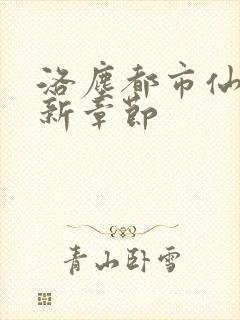 洛塵都市仙
新章節
青山卧雪